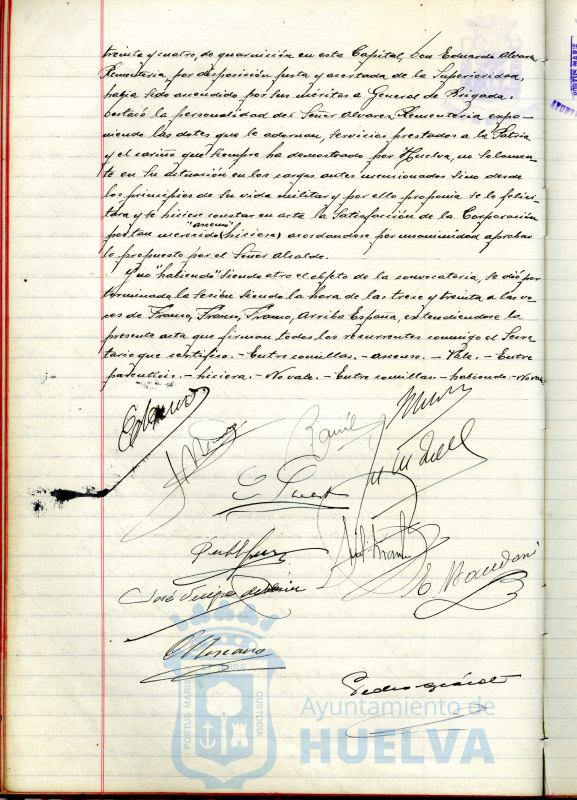 treinta y cuatro, de guarnición en esta Capital, Don Eduardo Alvarez
Rementeria, por disposición justa y acertada de la Superioridad,
había sido ascendido por sus méritos a General de Brigada.
la personalidad del Señor Alvarez Rementeria expo-
niendo las dotes que le adornan, servicios prestados a la Patria
y el cariño que siempre ha demostrado por Huelva, no solamen-
te en su actuación en los cargos antes mencionados sino desde
los principios de su vida militar y por ello proponia se le felici-
tara y se hiciese constar en acta la Satisfacción de la Corporación
"ascenso"
por tan merecido (hiciera) acordandose por unanimidad aprobar
lo propuesto por el Señor Alcalde.
Y no "habiendo" siendo otro el objeto de la convocatoria, se dió por
terminada la sesión siendo la hora de las trece y treinta a las vo-
ces de Franco, Franco, Franco, Arriba España, extendiendose la
presente acta que firman todos los concurrentes conmigo el Secre-
tario que certifico. - Entre comillas. - ascenso. - Vale. - Entre
parentisis. - hiciera. - No vale. - Entre comillas. - habiendo - No vale
José
E
Pedro
PORTUS MARIS
ET TERRAE
CUSTODIA
Ayuntamiento de
HUELVA